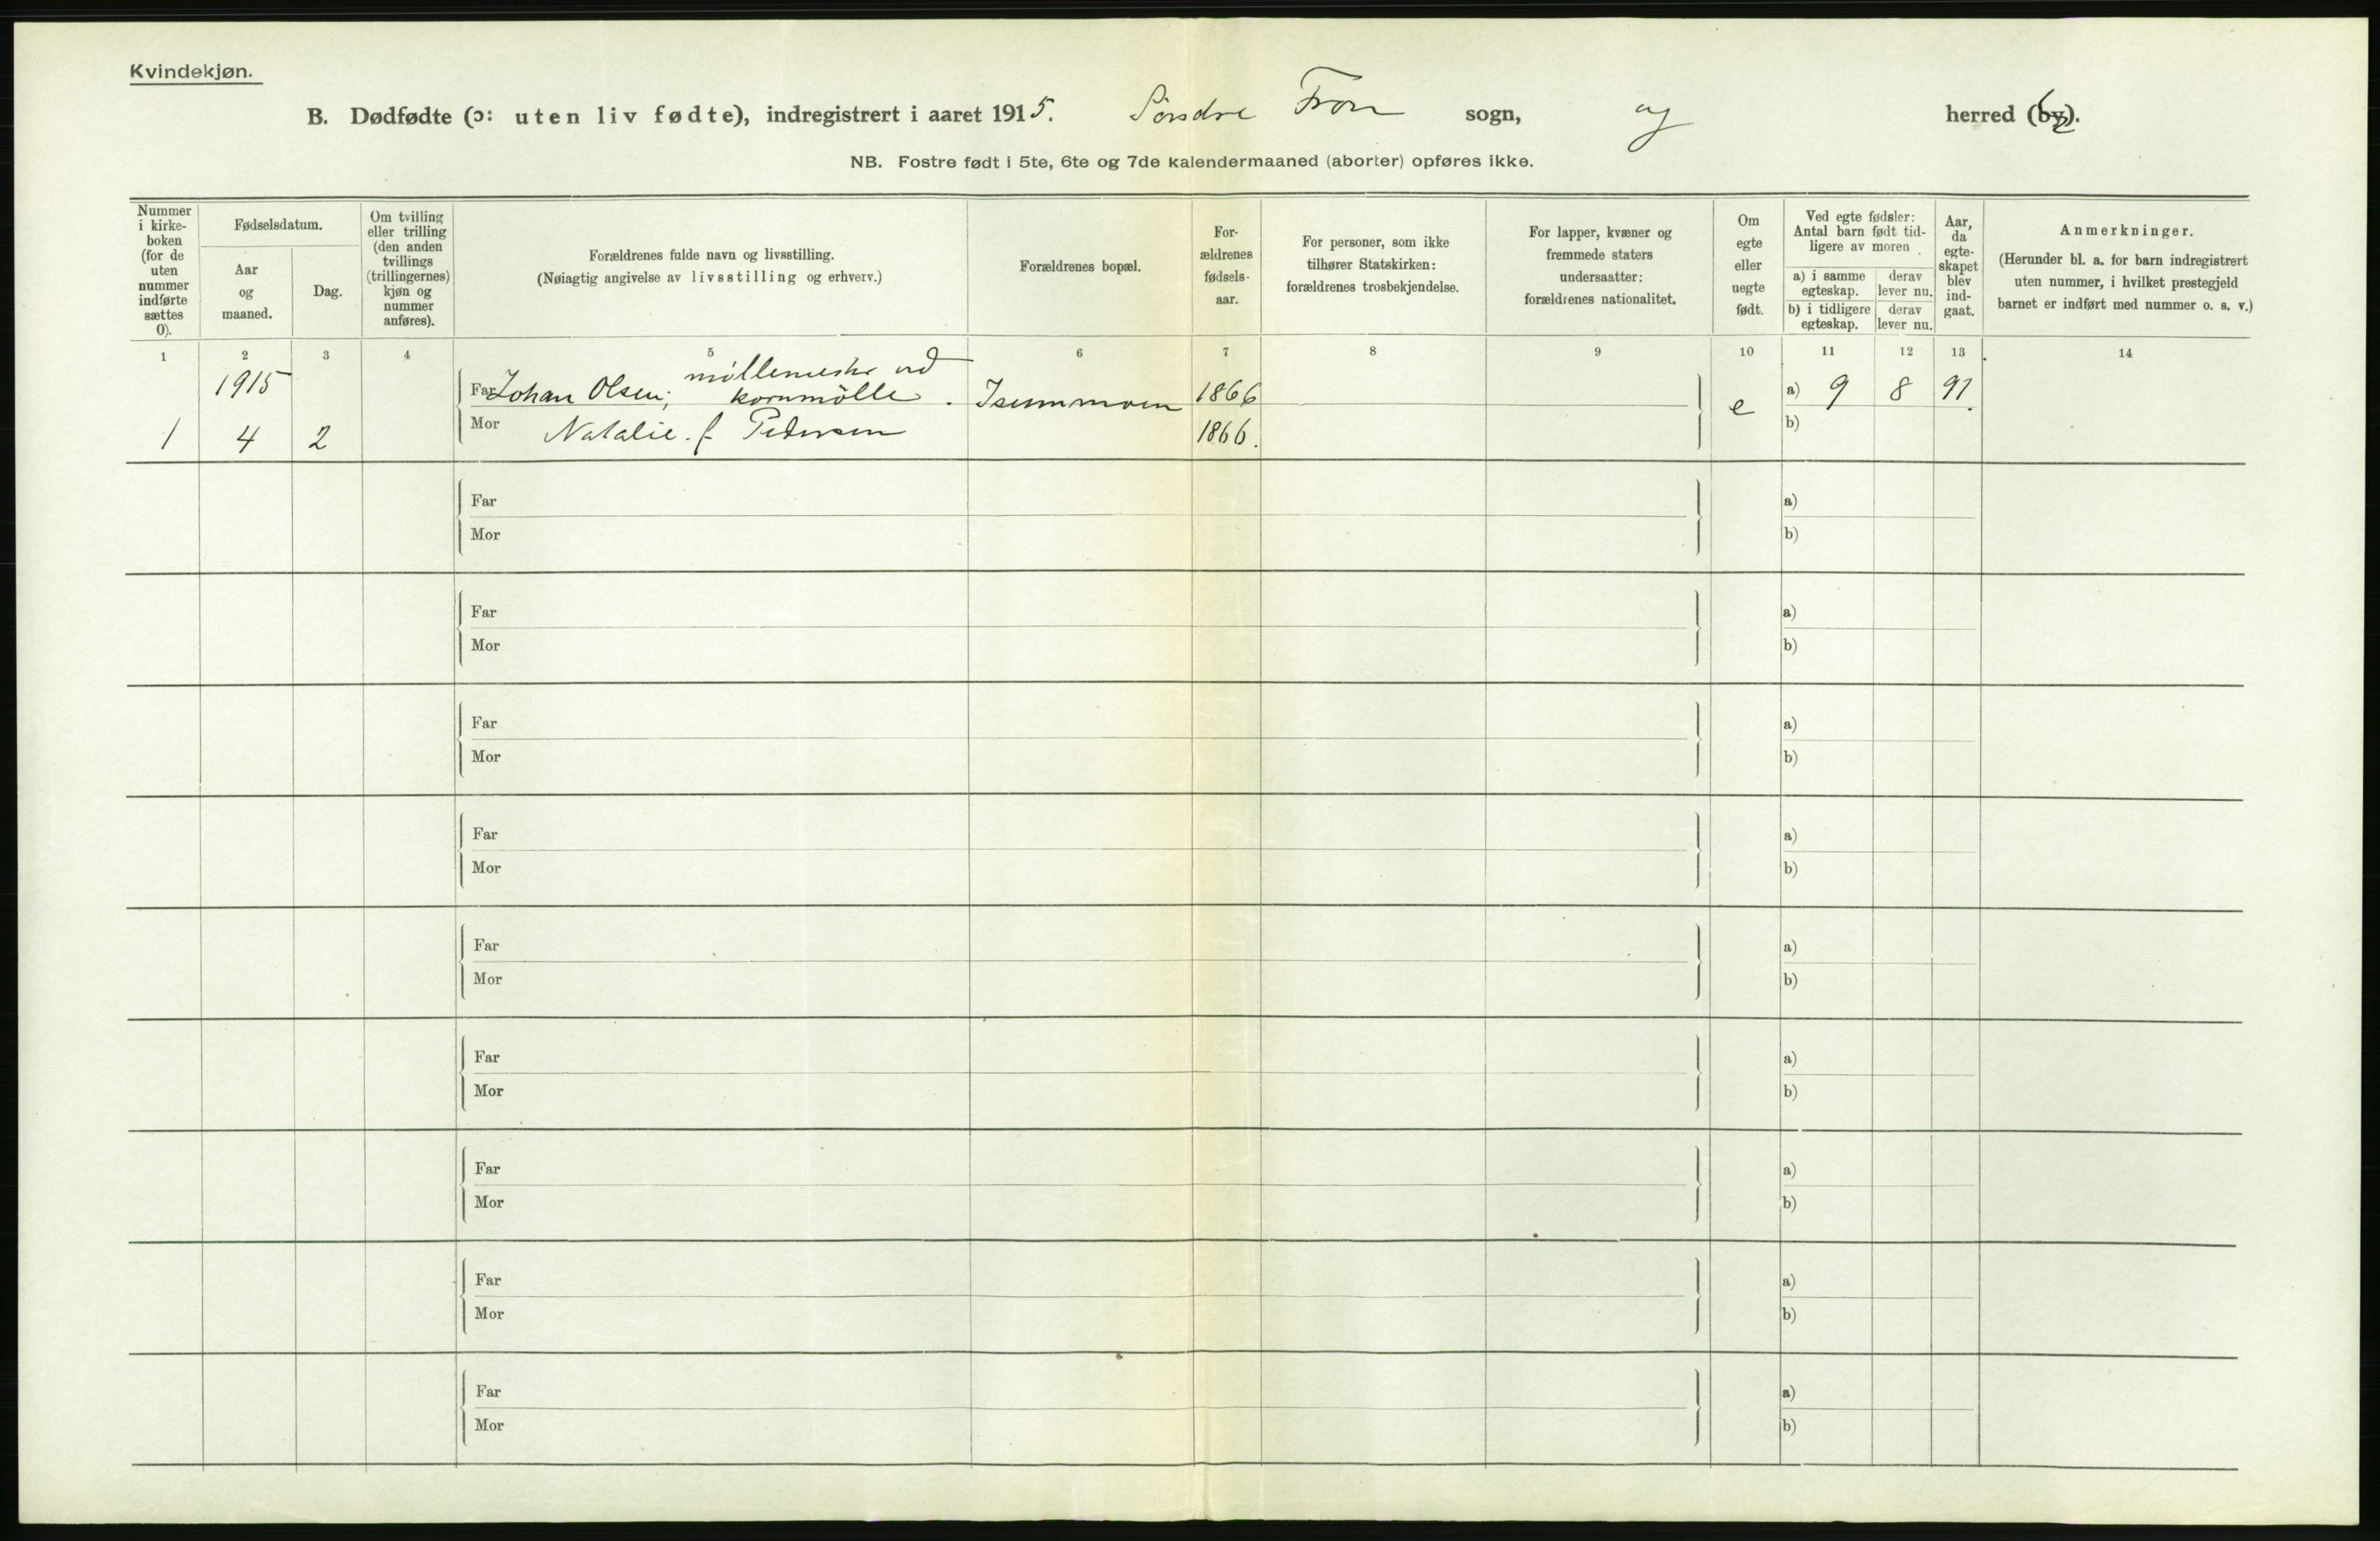 Kvindekjøn.
B. Dødfødte (ɔ: uten liv fødte), indregistrert i aaret 1915. Søndre Fron sogn, og herred (by).
NB. Fostre født i 5te, 6te og 7de kalendermaaned (aborter) opføres ikke.
Nummer i kirke-boken (for de uten nummer indførte sættes 0).
Fødselsdatum.
Aar og maaned.
Dag.
Om tvilling eller trilling (den anden tvillings (trillingernes) kjøn og nummer anføres).
Forældrenes fulde navn og livsstilling.
(Nøiagtig angivelse av livsstilling og erhverv.)
Forældrenes bopæl.
For-ældrenes fødsels-aar.
For personer, som ikke tilhører Statskirken: forældrenes trosbekjendelse.
For lapper, kvæner og fremmede staters undersaatter: forældrenes nationalitet.
Om egte eller uegte født.
Ved egte fødsler: Antal barn født tid-ligere av moren
a) i samme egteskap.
derav lever nu.
b) i tidligere egteskap.
derav lever nu.
Aar, da egte-skapet blev ind-gaat.
Anmerkninger.
(Herunder bl. a. for barn indregistrert uten nummer, i hvilket prestegjeld barnet er indført med nummer o. s. v.)
1 2 3 4 5 6 7 8 9 10 11 12 13 14
1915 møllemester ved
Far Johan Olsen; kornmølle. Isummoen 1866 e a) 9 8 91.
1 4 2 Mor Natalie f. Pedersen 1866. b)
Far a)
Mor b)
Far a)
Mor b)
Far a)
Mor b)
Far a)
Mor b)
Far a)
Mor b)
Far a)
Mor b)
Far a)
Mor b)
Far a)
Mor b)
Far a)
Mor b)